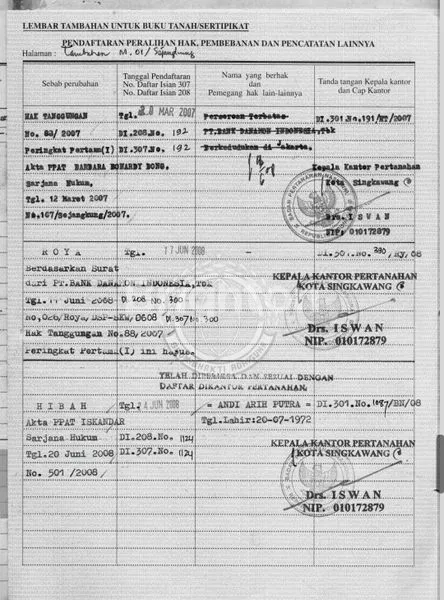 LEMBAR TAMBAHAN UNTUK BUKU TANAH/SERTIPIKAT
PENDAFTARAN PERALIHAN HAK, PEMBEBANAN DAN PENCATATAN LAINNYA
Halaman : Tambahan M. 01/ Sejangkung
Sebab perubahan
Tanggal Pendaftaran
No. Daftar Isian 307
No. Daftar Isian 208
Nama yang berhak
dan
Pemegang hak lain-lainnya
Tanda tangan Kepala kantor
dan Cap Kantor
HAK TANGGUNGAN Tgl. MAR 2007 Perseroan Terbatas DI.301.No.191/HT/2007
No. 88/ 2007 DI.208.No. 192 PT.BANK DANAMON INDONESIA,Tbk
Peringkat Pertama(I) DI.307.No. 192 Berkedudukan di Jakarta.
Akta PPAT BARBARA BONARDY BONG. Kepala Kantor Pertanahan
Sarjana Hukum. Kota Singkawang
Tgl. 12 Maret 2007
No.167/Sejangkung/2007. Drs. I S W A N
NIP. 010172879
R O Y A Tgl. 17 JUN 2008 DI.301.No. 380/Ry/08
Berdasarkan Surat
dari PT.BANK DANAMON INDONESIA,Tbk
KEPALA KANTOR PERTANAHAN
KOTA SINGKAWANG
Tgl. Juni 2008 DI 208 No. 300
No, /Roya/DSP-SKW/0608 DI.307 No. 300
Hak Tanggungan No.88/2007
Peringkat Pertama(I) ini hapus.
Drs. I S W A N
NIP. 010172879
TELAH DIPERIKSA DAN SESUAI DENGAN
DAFTAR DIKANTOR PERTANAHAN.
H I B A H Tgl. JUN 2008 = ANDI ARIH PUTRA = DI.301.No. 1087/BN/08
Akta PPAT ISKANDAR Tgl.Lahir:20-07-1972
Sarjana Hukum DI.208.No. 1124
Tgl.20 Juni 2008 DI.307.No. 1124
No. 501 /2008/
KEPALA KANTOR PERTANAHAN
KOTA SINGKAWANG
Drs. I S W A N
NIP. 010172879